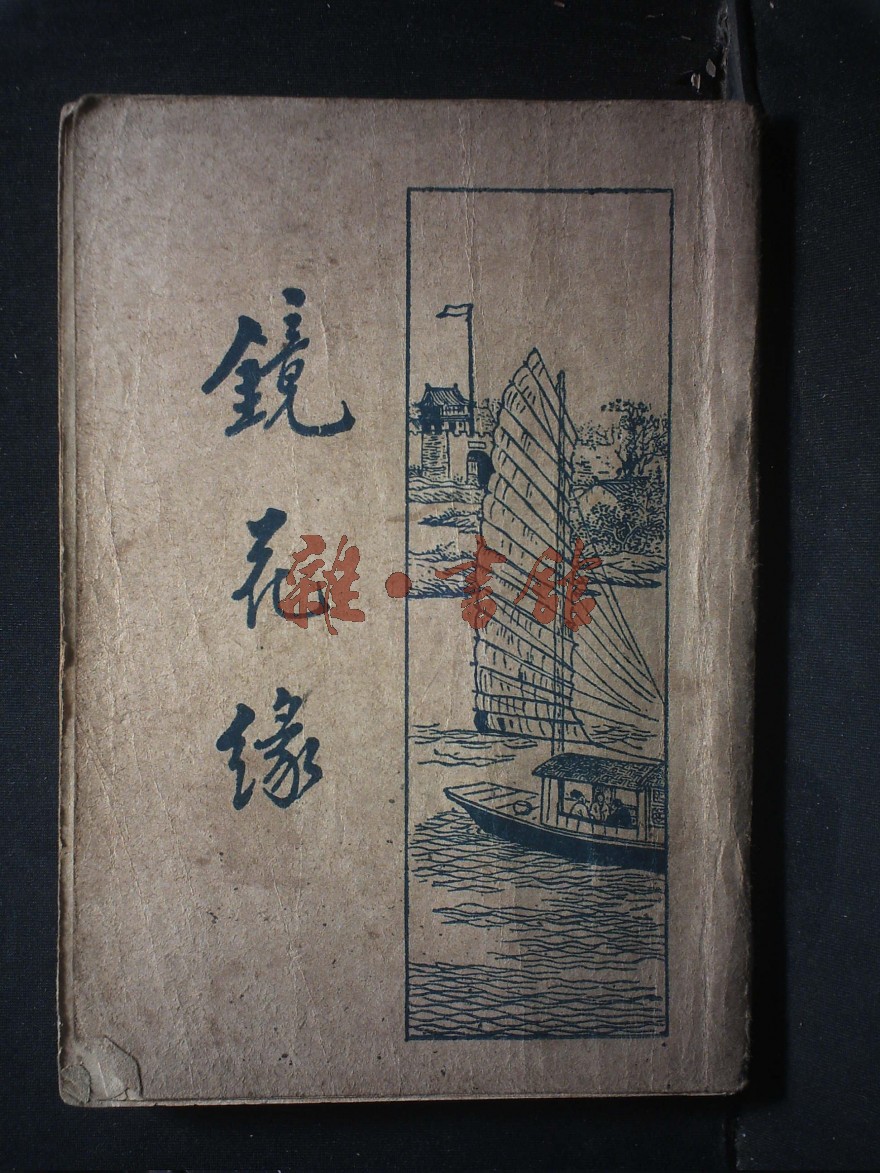 鏡花緣
雜·書館